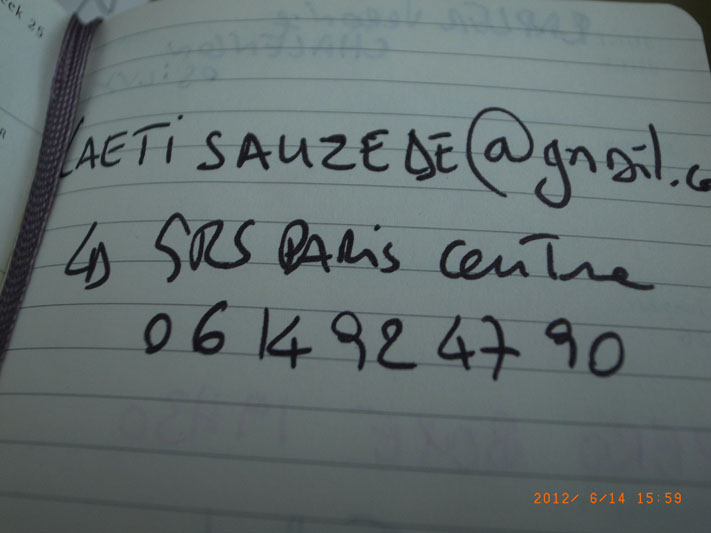 eek 25
LAETI SAUZEDE@gmail.co
↳ SRS PARIS Centre
06 14 92 47 90
2012/ 6/14 15:59